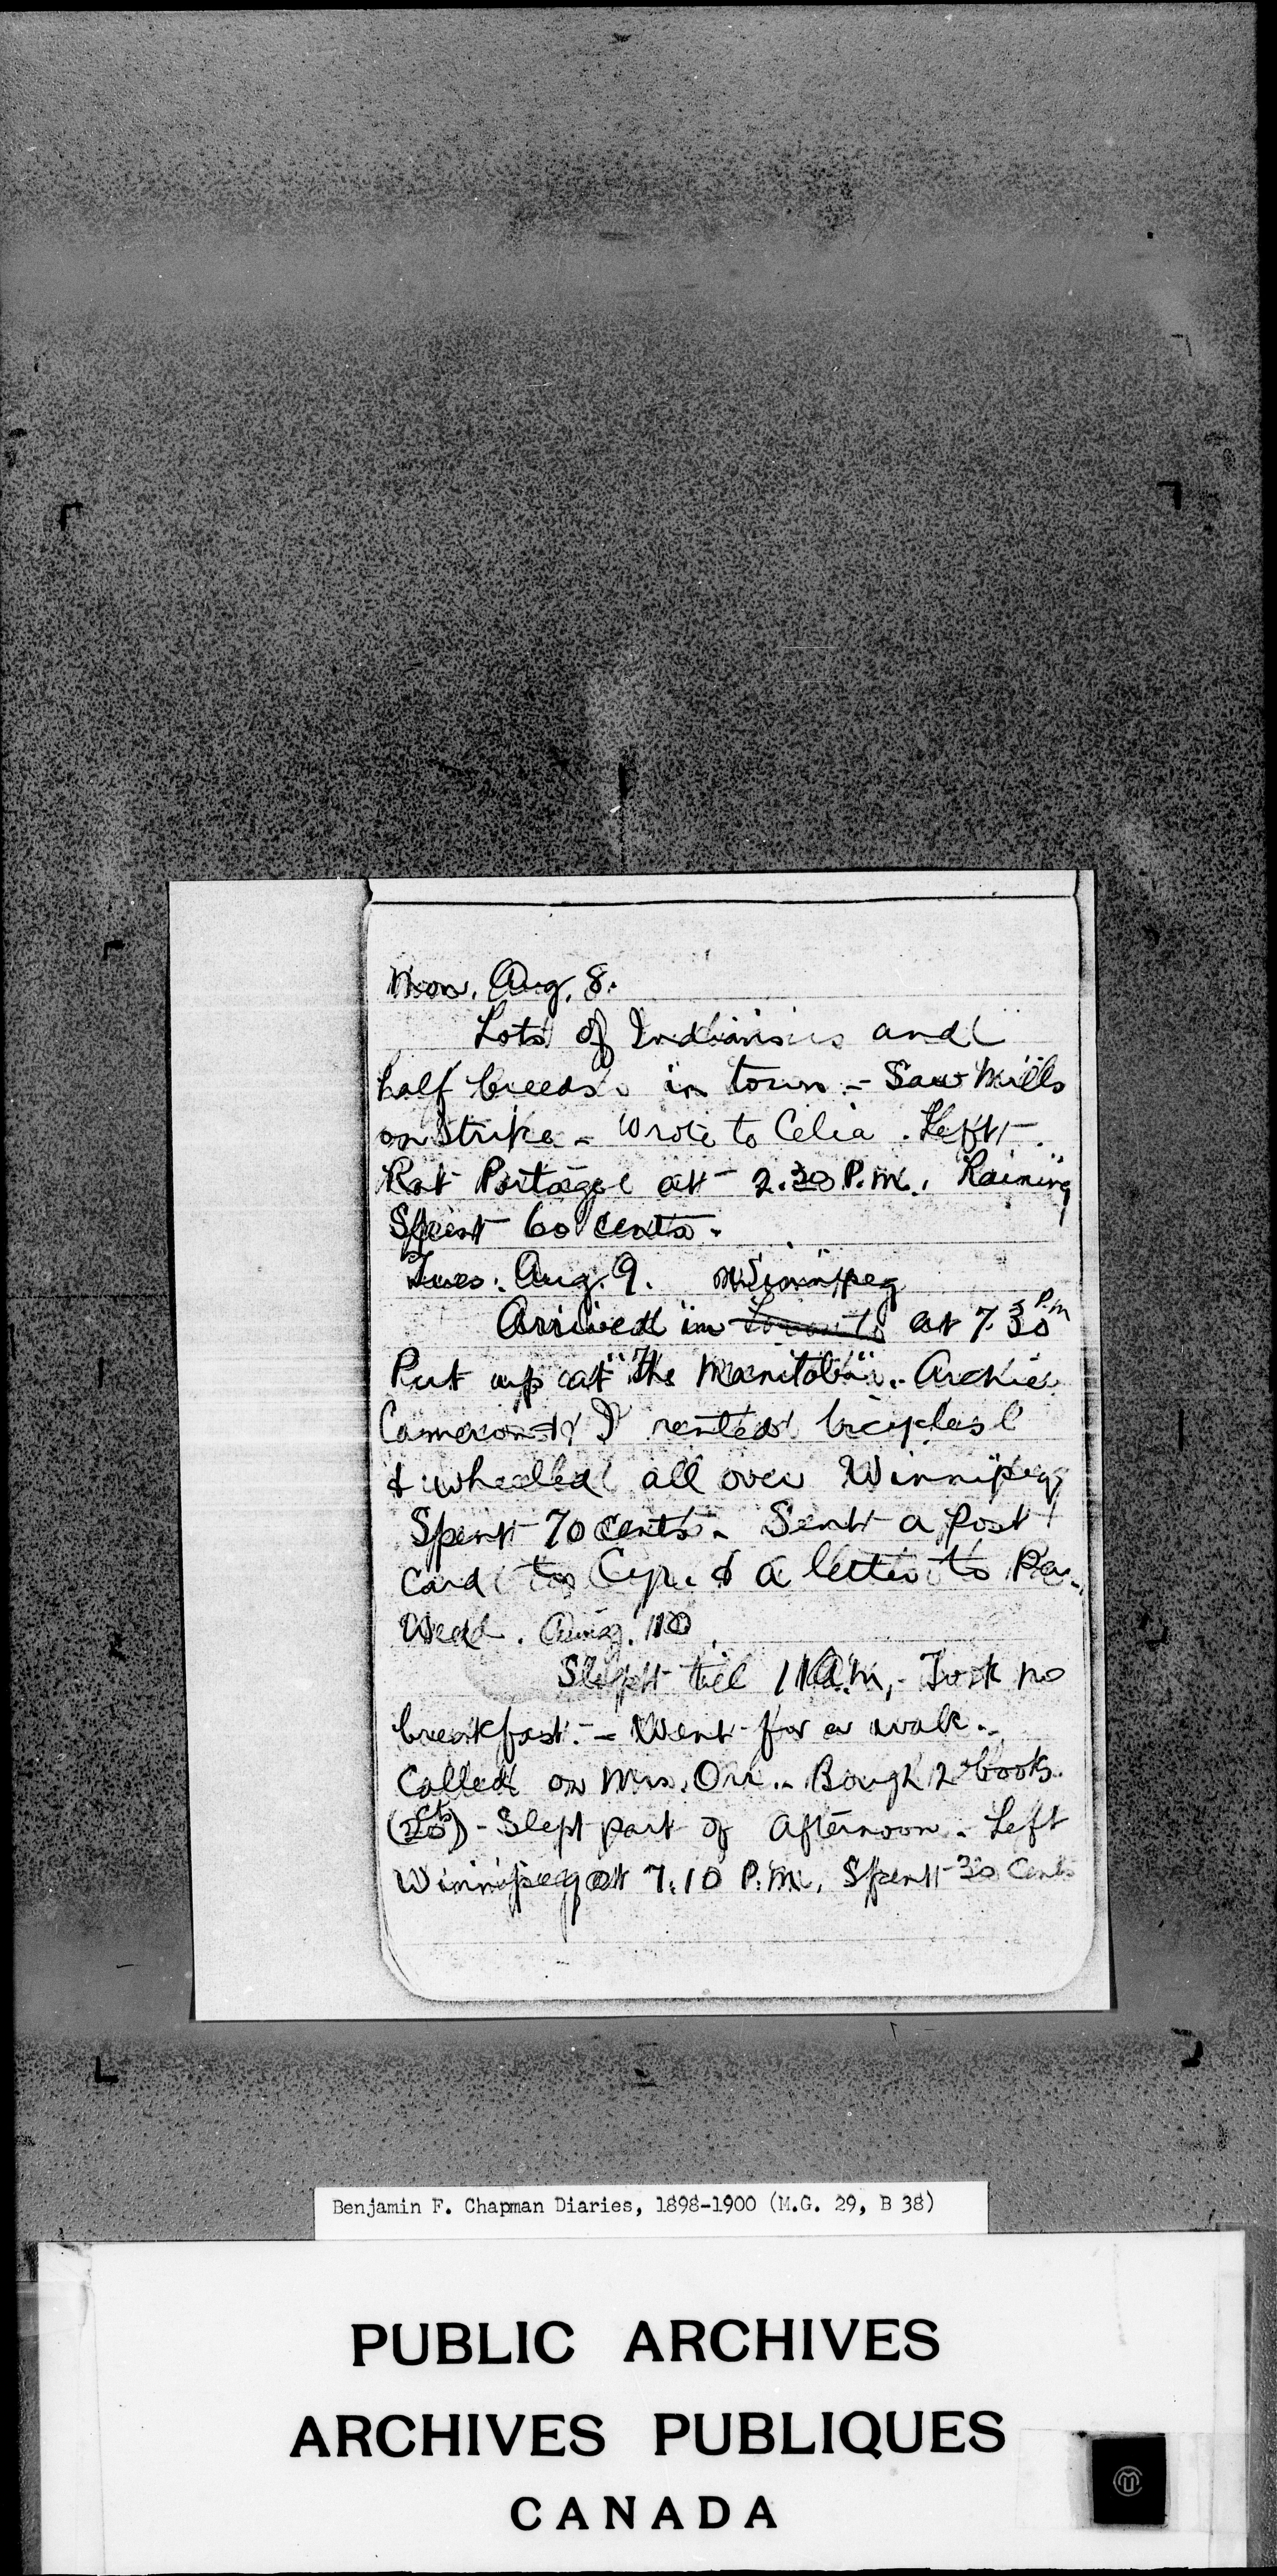 Mon. Aug. 8.
Lots of Indians and
half breeds in town - Saw Mills
on Strike - Wrote to Celia. Left
Rat Portage at 2.30 P.M. Raining
Spent 60 cents.
Tues. Aug. 9. Winnipeg
Arrived in Toronto at 7.30 P.M
Put up at "The Manitoba". Archie
Cameron & I rented bicycles
& wheeled all over Winnipeg
Spent 70 cents - Sent a Post
Card to Cyr. & a letter to Pa.
Wed. Aug. 10
Slept till 11 A.M, - Took no
breakfast. - Went for a walk.
Called on Mrs. Orr. - Bough 2 books
(20 cts) - Slept part of afternoon - Left
Winnipeg at 7.10 P.M. Spent 30 Cents
Benjamin F. Chapman Diaries, 1898-1900 (M.G. 29, B 38)
PUBLIC ARCHIVES
ARCHIVES PUBLIQUES
CANADA